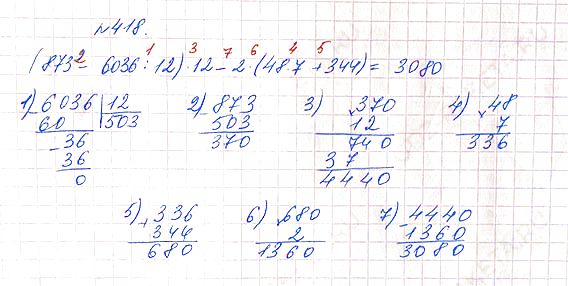 №418.
2 1 3 7 6 4 5
(873 - 6036 : 12) · 12 - 2 · (48·7 + 344) = 3080
1) 6036 | 12 2) 873 3) 370 4) 48
60 503 503 12 7
36 370 740 336
36 37
0 4440
5) 336 6) 680 7) 4440
+ 344 2 - 1360
680 1360 3080